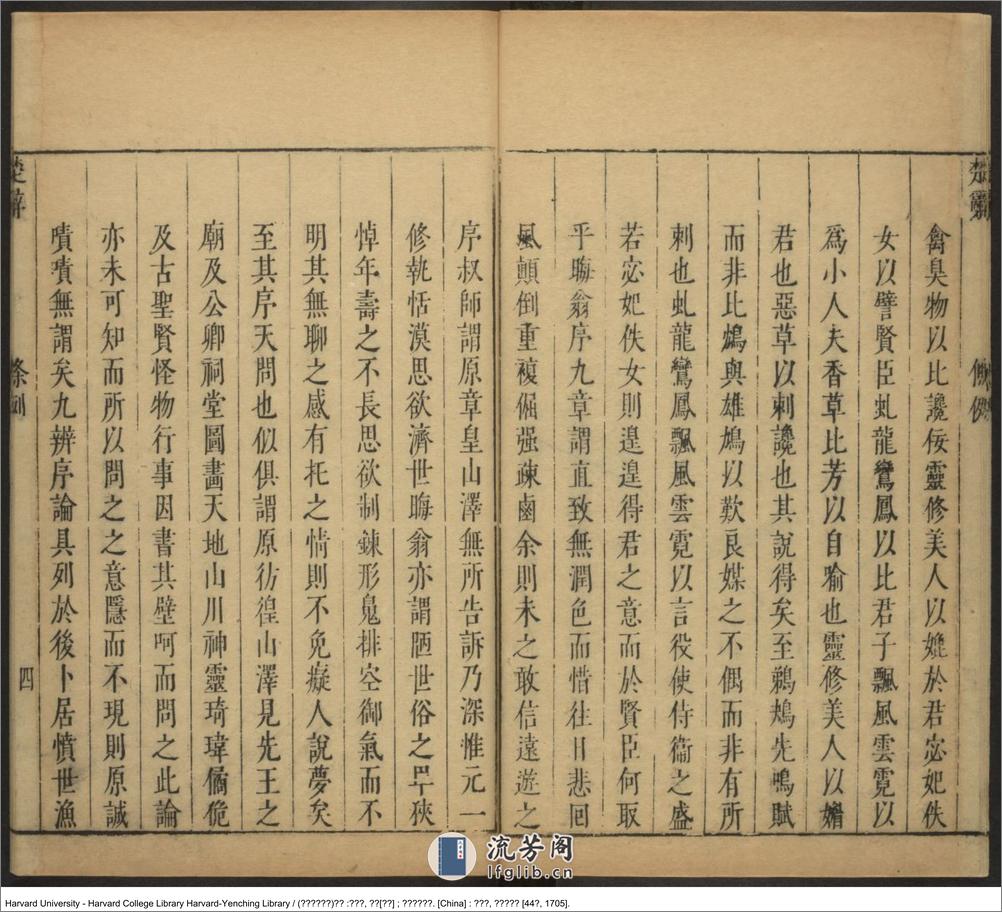 楚辭
條例
禽臭物以比讒佞靈修美人以媲於君宓妃佚
女以譬賢臣虬龍鸞鳳以比君子飄風雲霓以
爲小人夫香草比芳以自喻也靈修美人以媲
君也惡草以刺讒也其說得矣至鵜鴂先鳴賦
而非比鴆與雄鳩以歎良媒之不偶而非有所
刺也虬龍鸞鳳飄風雲霓以言役使侍衞之盛
若宓妃佚女則遑遑得君之意而於賢臣何取
乎晦翁序九章謂直致無潤色而惜往日悲回
風顛倒重複倔强疎鹵余則未之敢信遠遊之
序叔師謂原章皇山澤無所告訴乃深惟元一
修執恬漠思欲濟世晦翁亦謂陋世俗之卑狹
悼年壽之不長思欲制鍊形䰟排空御氣而不
明其無聊之感有托之情則不免癡人說夢矣
至其序天問也似俱謂原彷徨山澤見先王之
廟及公卿祠堂圖畵天地山川神靈琦瑋僪佹
及古聖賢怪物行事因書其壁呵而問之此論
亦未可知而所以問之之意隱而不現則原誠
嘖嘖無謂矣九辨序論具列於後卜居憤世漁
楚辭
條例
四
流芳阁
lfglib.cn
Harvard University - Harvard College Library Harvard-Yenching Library / (??????)?? :???, ??[??] ; ??????. [China] : ???, ????? [44?, 1705].